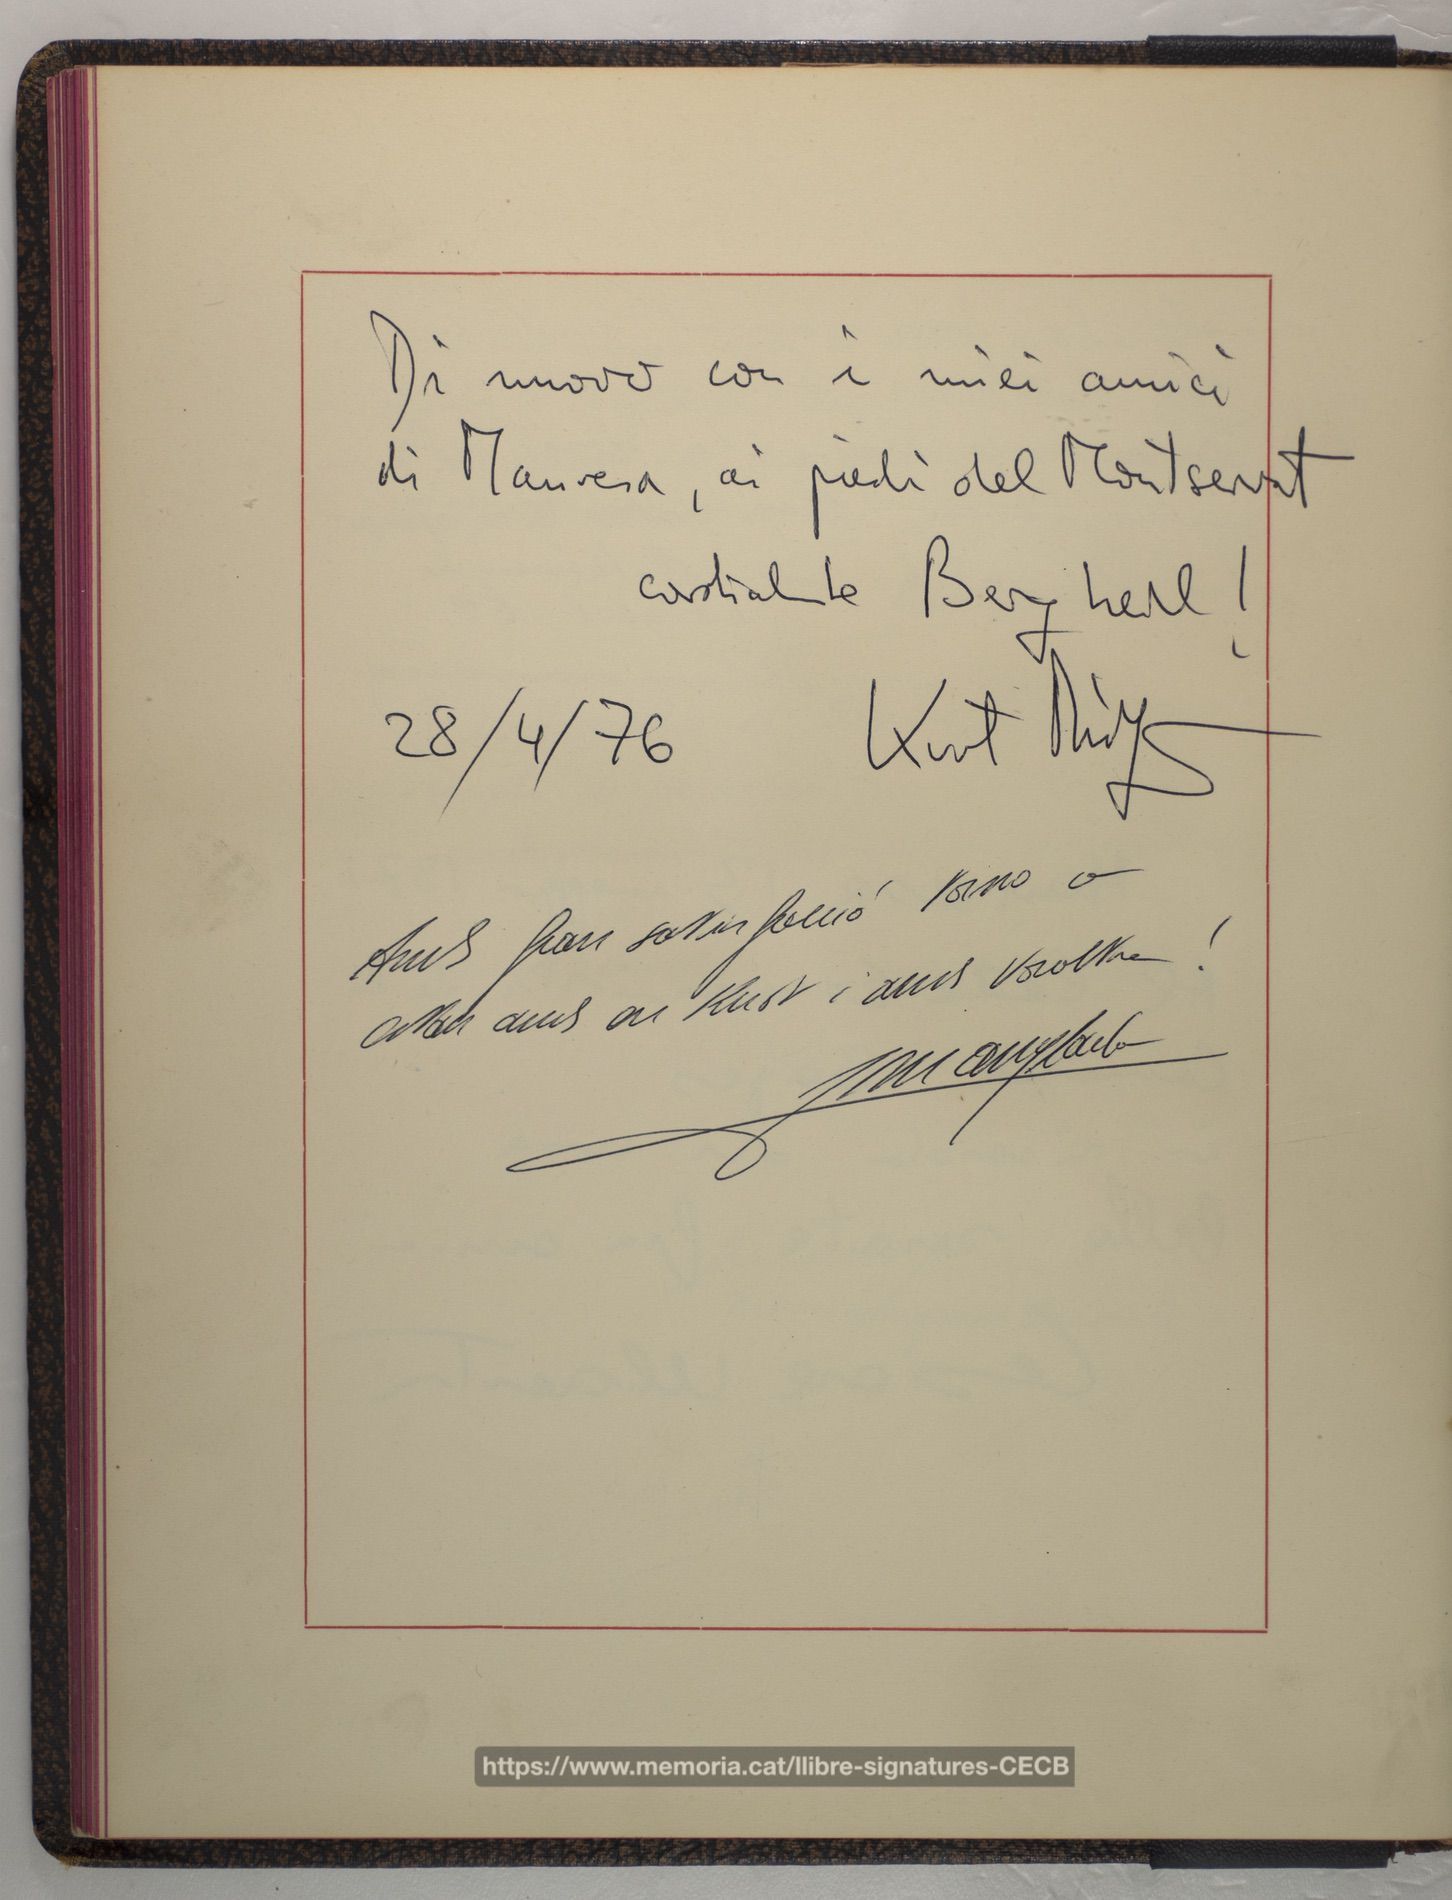 Di nuovo con i miei amici
di Manresa, ai piedi del Montserrat
cordialmte Berg heil!
28/4/76 Kurt
Amb gran satisfacció torno a
estar amb en Kurt i amb vosaltres!
https://www.memoria.cat/llibre-signatures-CECB